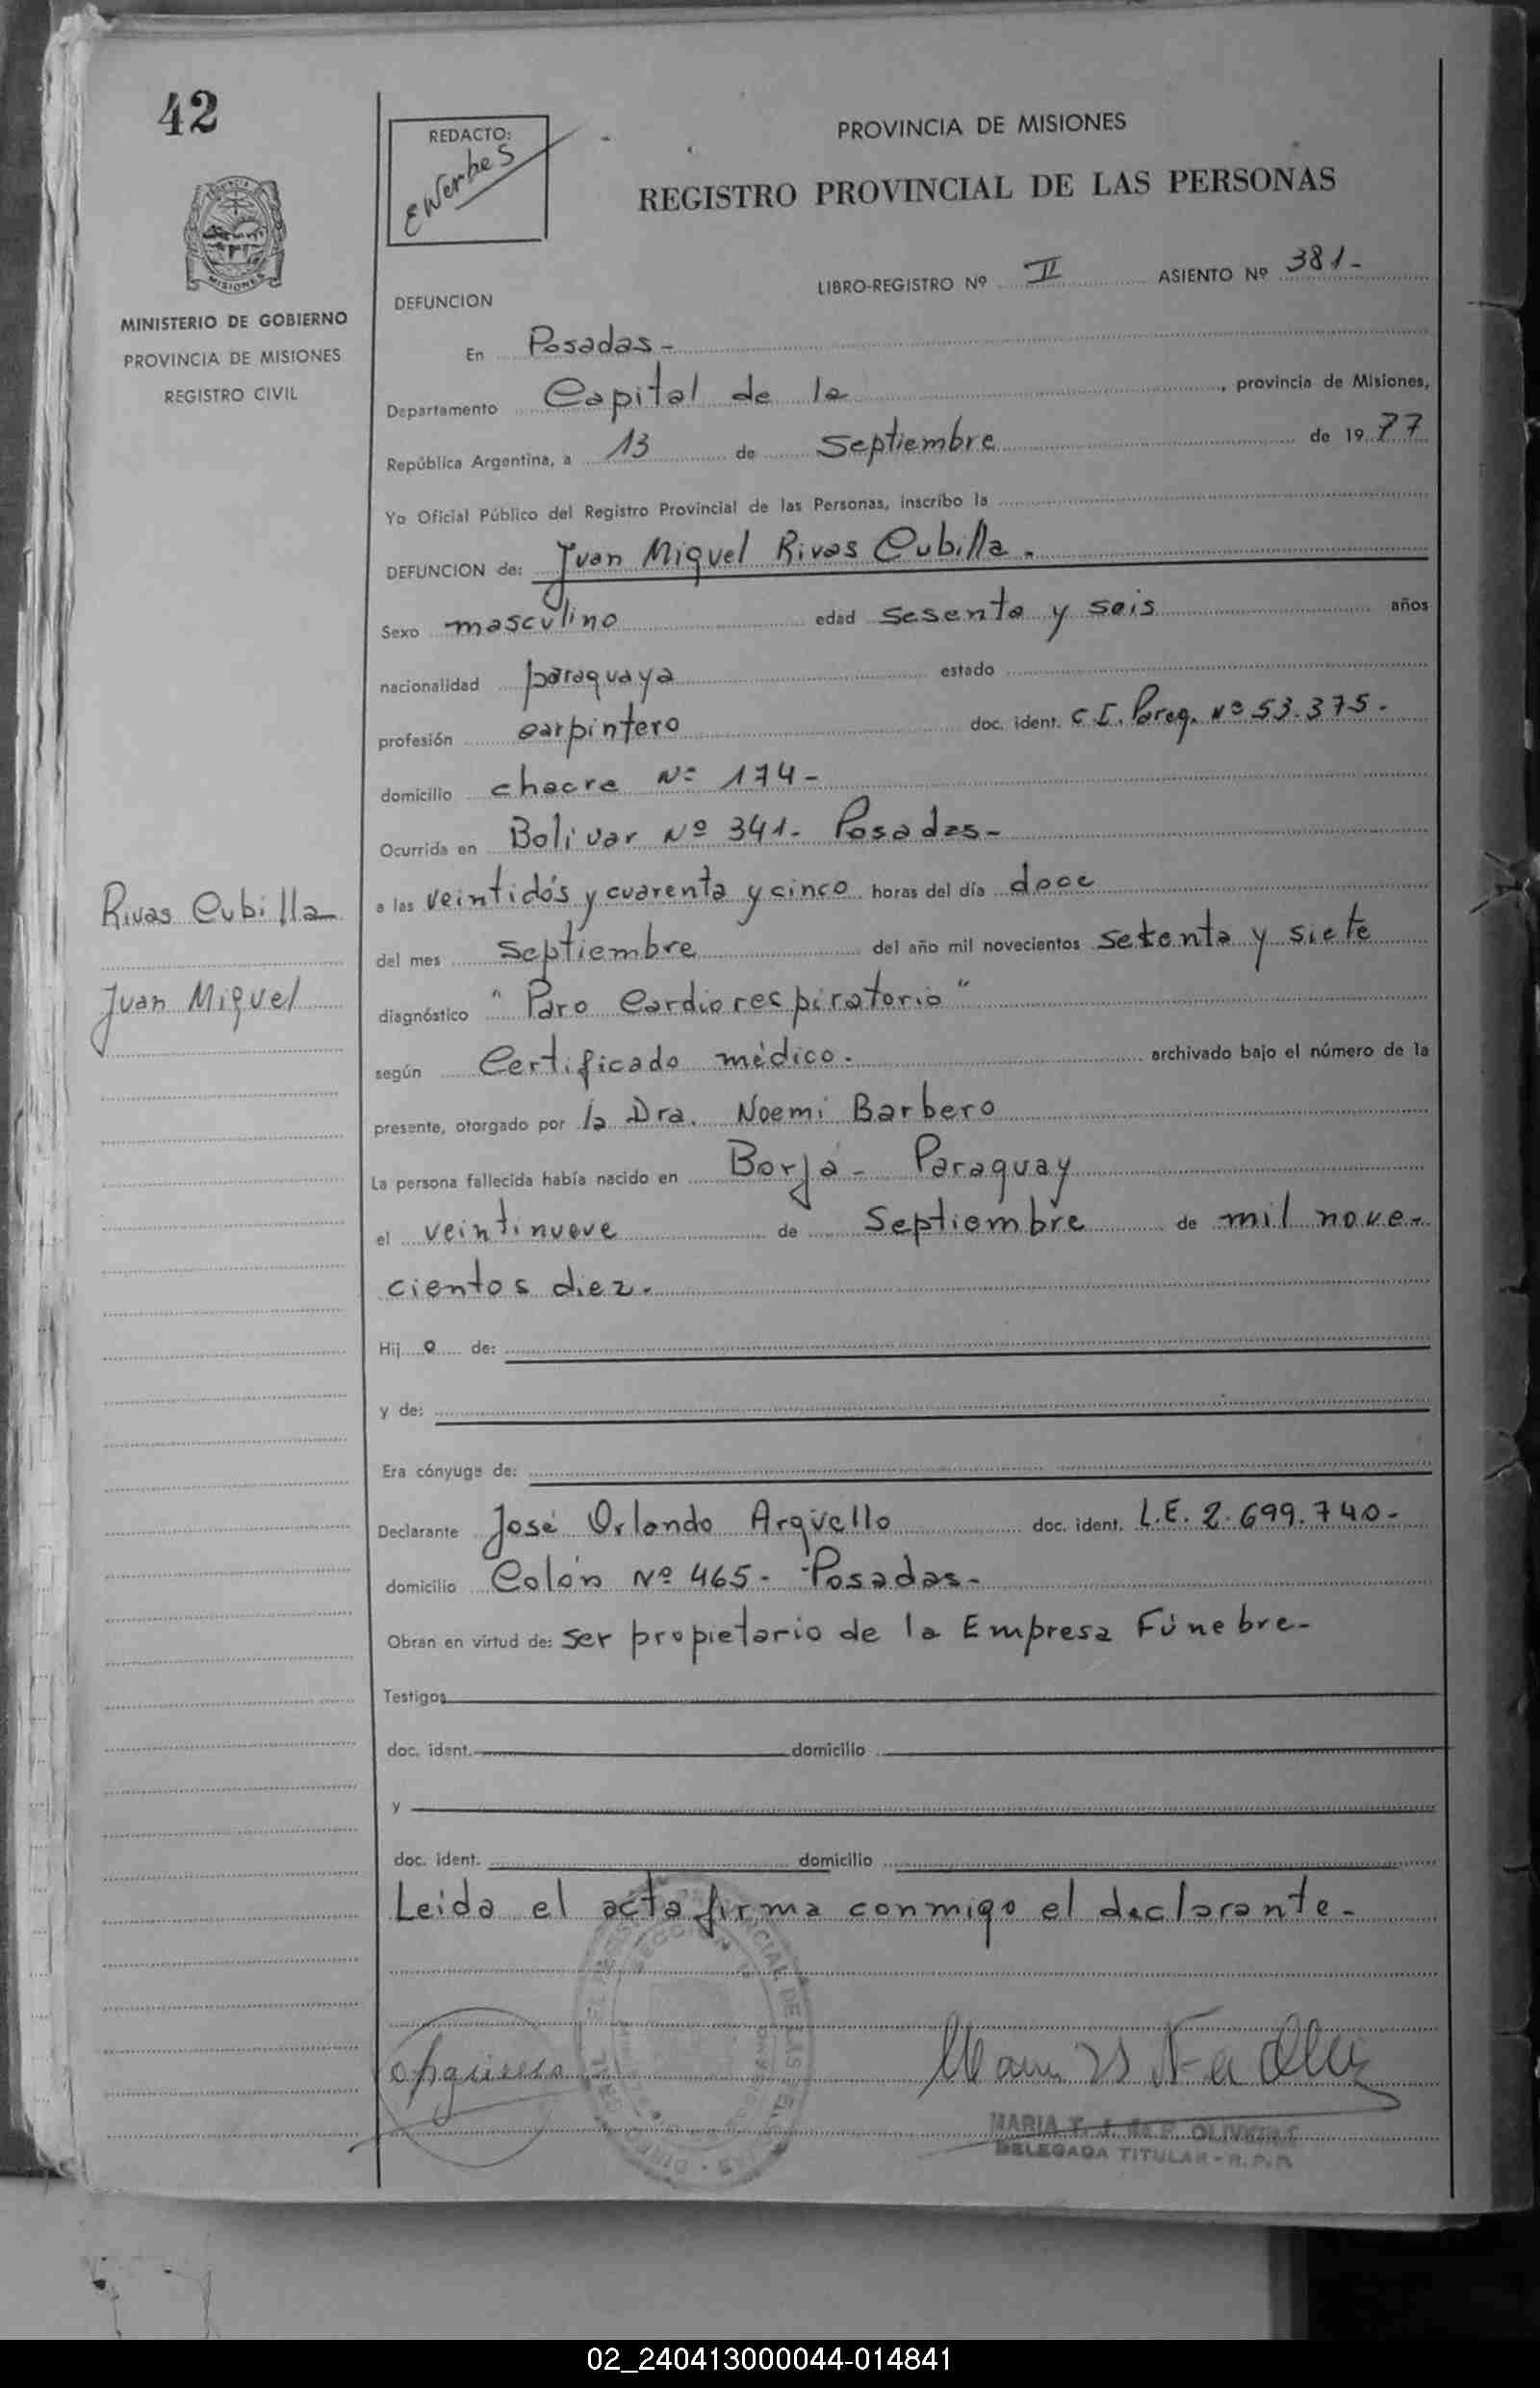 42
REDACTO:
PROVINCIA DE MISIONES
REGISTRO PROVINCIAL DE LAS PERSONAS
MISIONES
MINISTERIO DE GOBIERNO
PROVINCIA DE MISIONES
REGISTRO CIVIL
LIBRO-REGISTRO Nº II ASIENTO Nº 381-
DEFUNCION
En Posadas-
Departamento Capital de la, provincia de Misiones,
República Argentina, a 13 de Septiembre de 1977
Yo Oficial Público del Registro Provincial de las Personas, inscribo la
DEFUNCION de: Juan Miguel Rivas Cubilla.
Sexo masculino edad sesenta y seis años
nacionalidad paraguaya estado
profesión carpintero doc. ident. C.I. Parag. Nº 53.375.-
domicilio chacra Nº 174-
Ocurrida en Bolivar Nº 341- Posadas-
a las veintidós y cuarenta y cinco horas del día doce
del mes septiembre del año mil novecientos setenta y siete
diagnóstico "Paro Cardiorespiratorio"
según Certificado médico. archivado bajo el número de la
presente, otorgado por la Dra. Noemi Barbero
La persona fallecida había nacido en Borja - Paraguay
el veintinueve de Septiembre de mil nove-
cientos diez.
Hijo de:
y de:
Era cónyuge de:
Declarante José Orlando Argüello doc. ident. L.E. 2.699.740-
domicilio Colón Nº 465- Posadas-
Obran en virtud de: ser propietario de la Empresa Fúnebre-
Testigos
doc. ident. domicilio
y
doc. ident. domicilio
Leida el acta firma conmigo el declarante-
Rivas Cubilla
Juan Miguel
DELEGADA TITULAR - R.P.P.
02_240413000044-014841